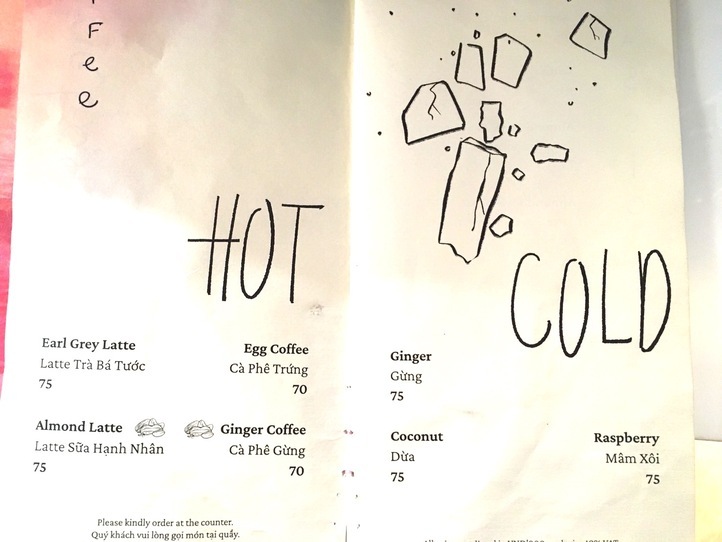 F
e
e
HOT
Earl Grey Latte
Latte Trà Bá Tước
75
Egg Coffee
Cà Phê Trứng
70
Almond Latte
Latte Sữa Hạnh Nhân
75
Ginger Coffee
Cà Phê Gừng
70
Please kindly order at the counter.
Quý khách vui lòng gọi món tại quầy.
COLD
Ginger
Gừng
75
Coconut
Dừa
75
Raspberry
Mâm Xôi
75